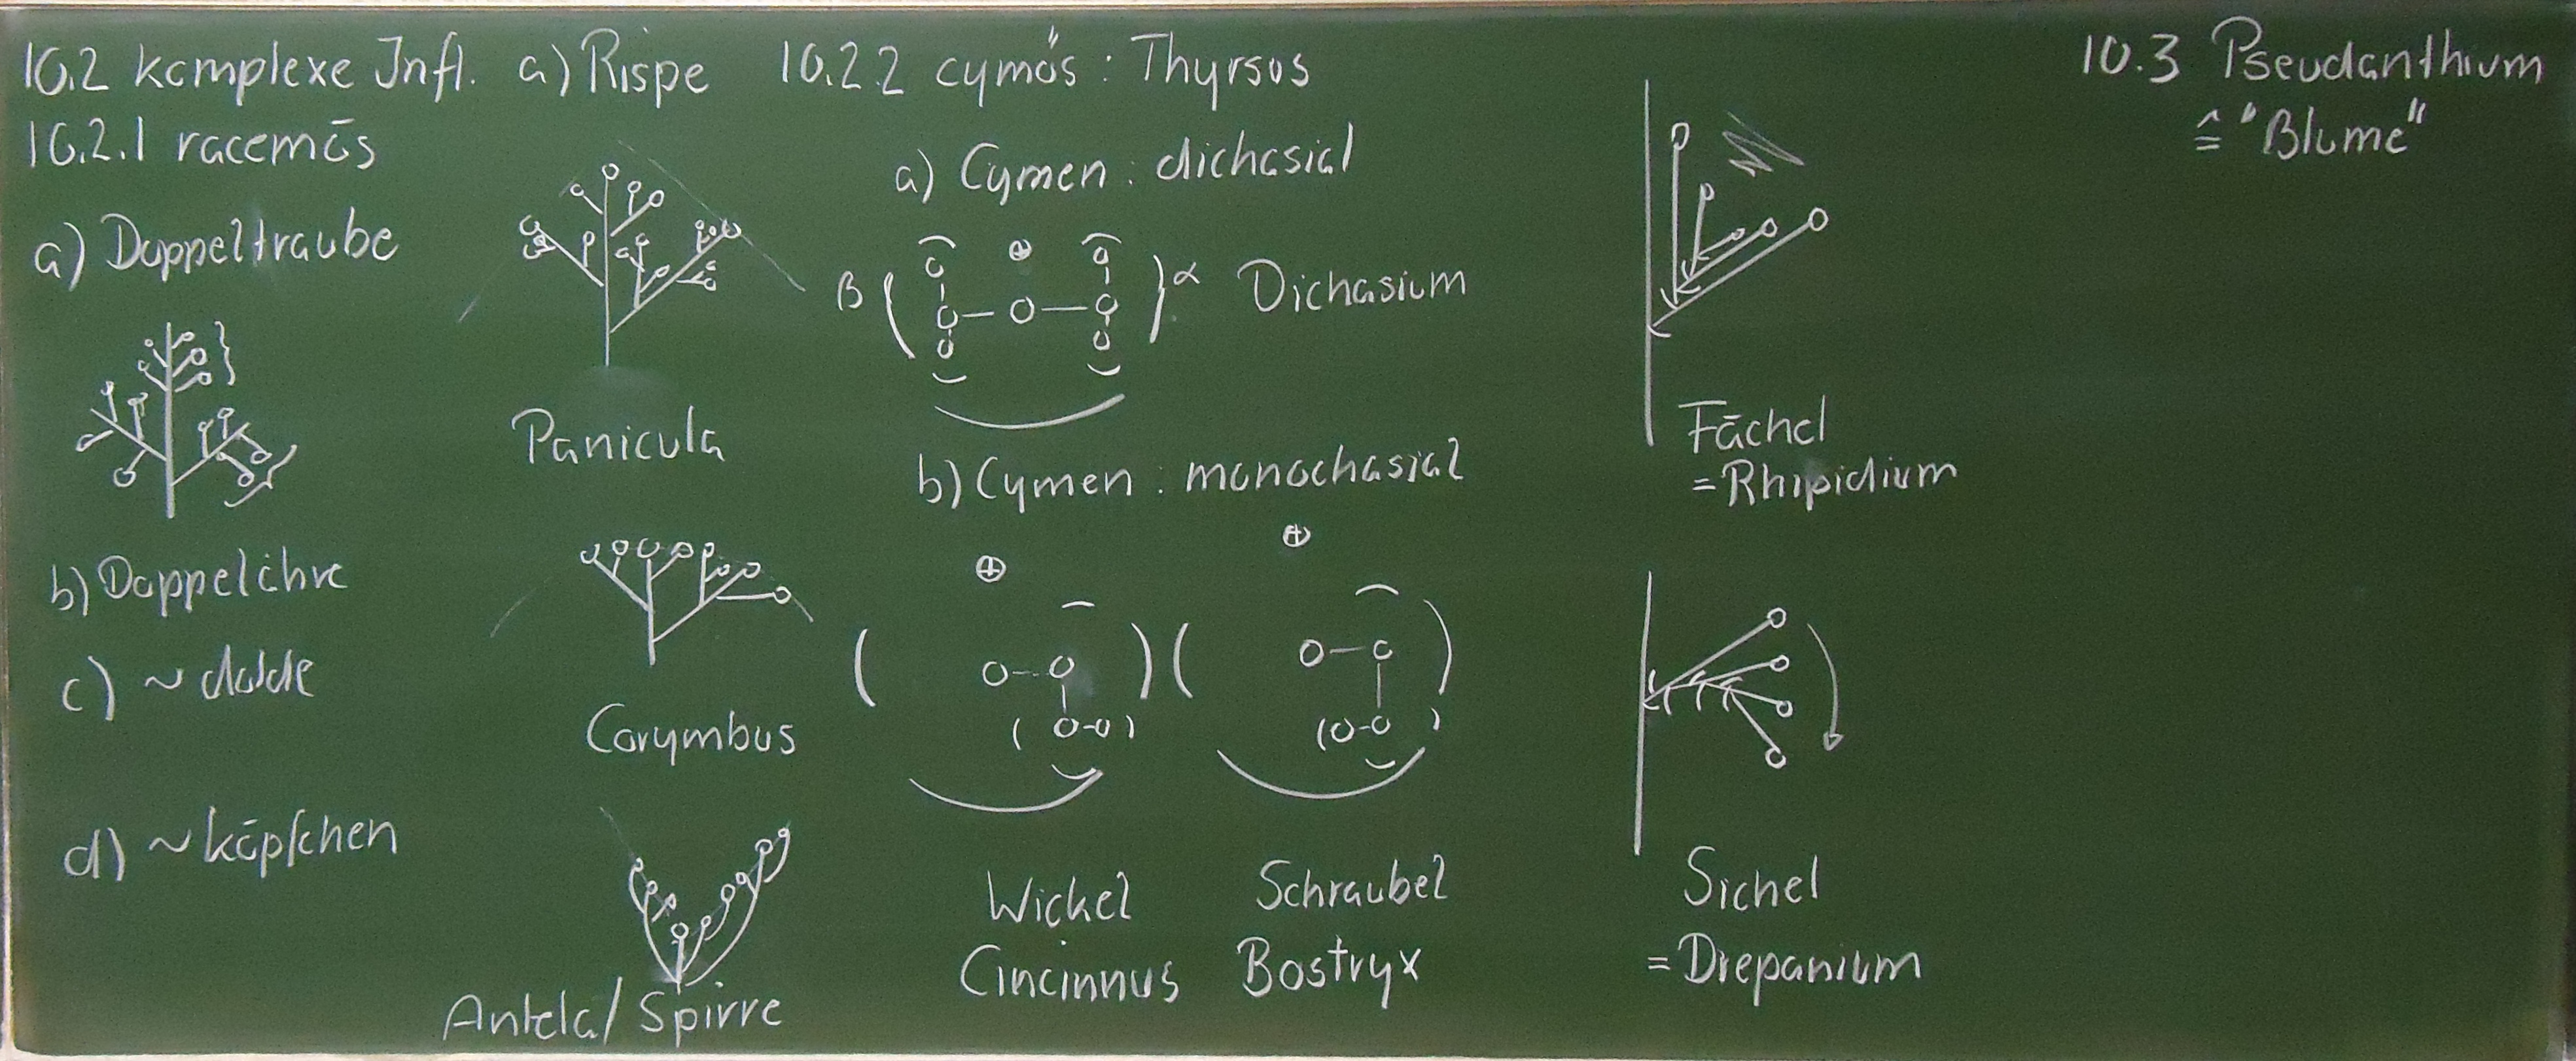 10.2 komplexe Infl.
10.2.1 racemös
a) Doppeltraube
b) Doppelähre
c) ~ dolde
d) ~ köpfchen
a) Rispe
Panicula
Corymbus
Antela/Spirre
10.2.2 cymös : Thyrsos
a) Cymen : dichasial
β ( ) α Dichasium
b) Cymen : monochasial
Wickel
Cincinnus
Schraubel
Bostryx
Fächel
= Rhipidium
Sichel
= Drepanium
10.3 Pseudanthium
≙ "Blume"